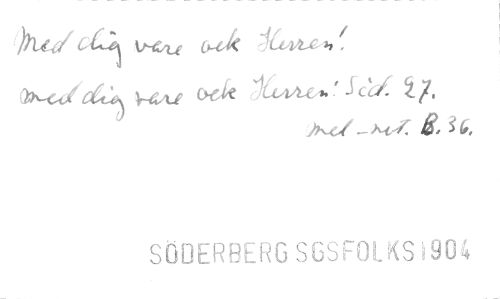 Med dig vare ock Herren!
med dig vare ock Herren! Söd. 27.
mel-not. B. 36.
SÖDERBERG SGSFOLKS1904